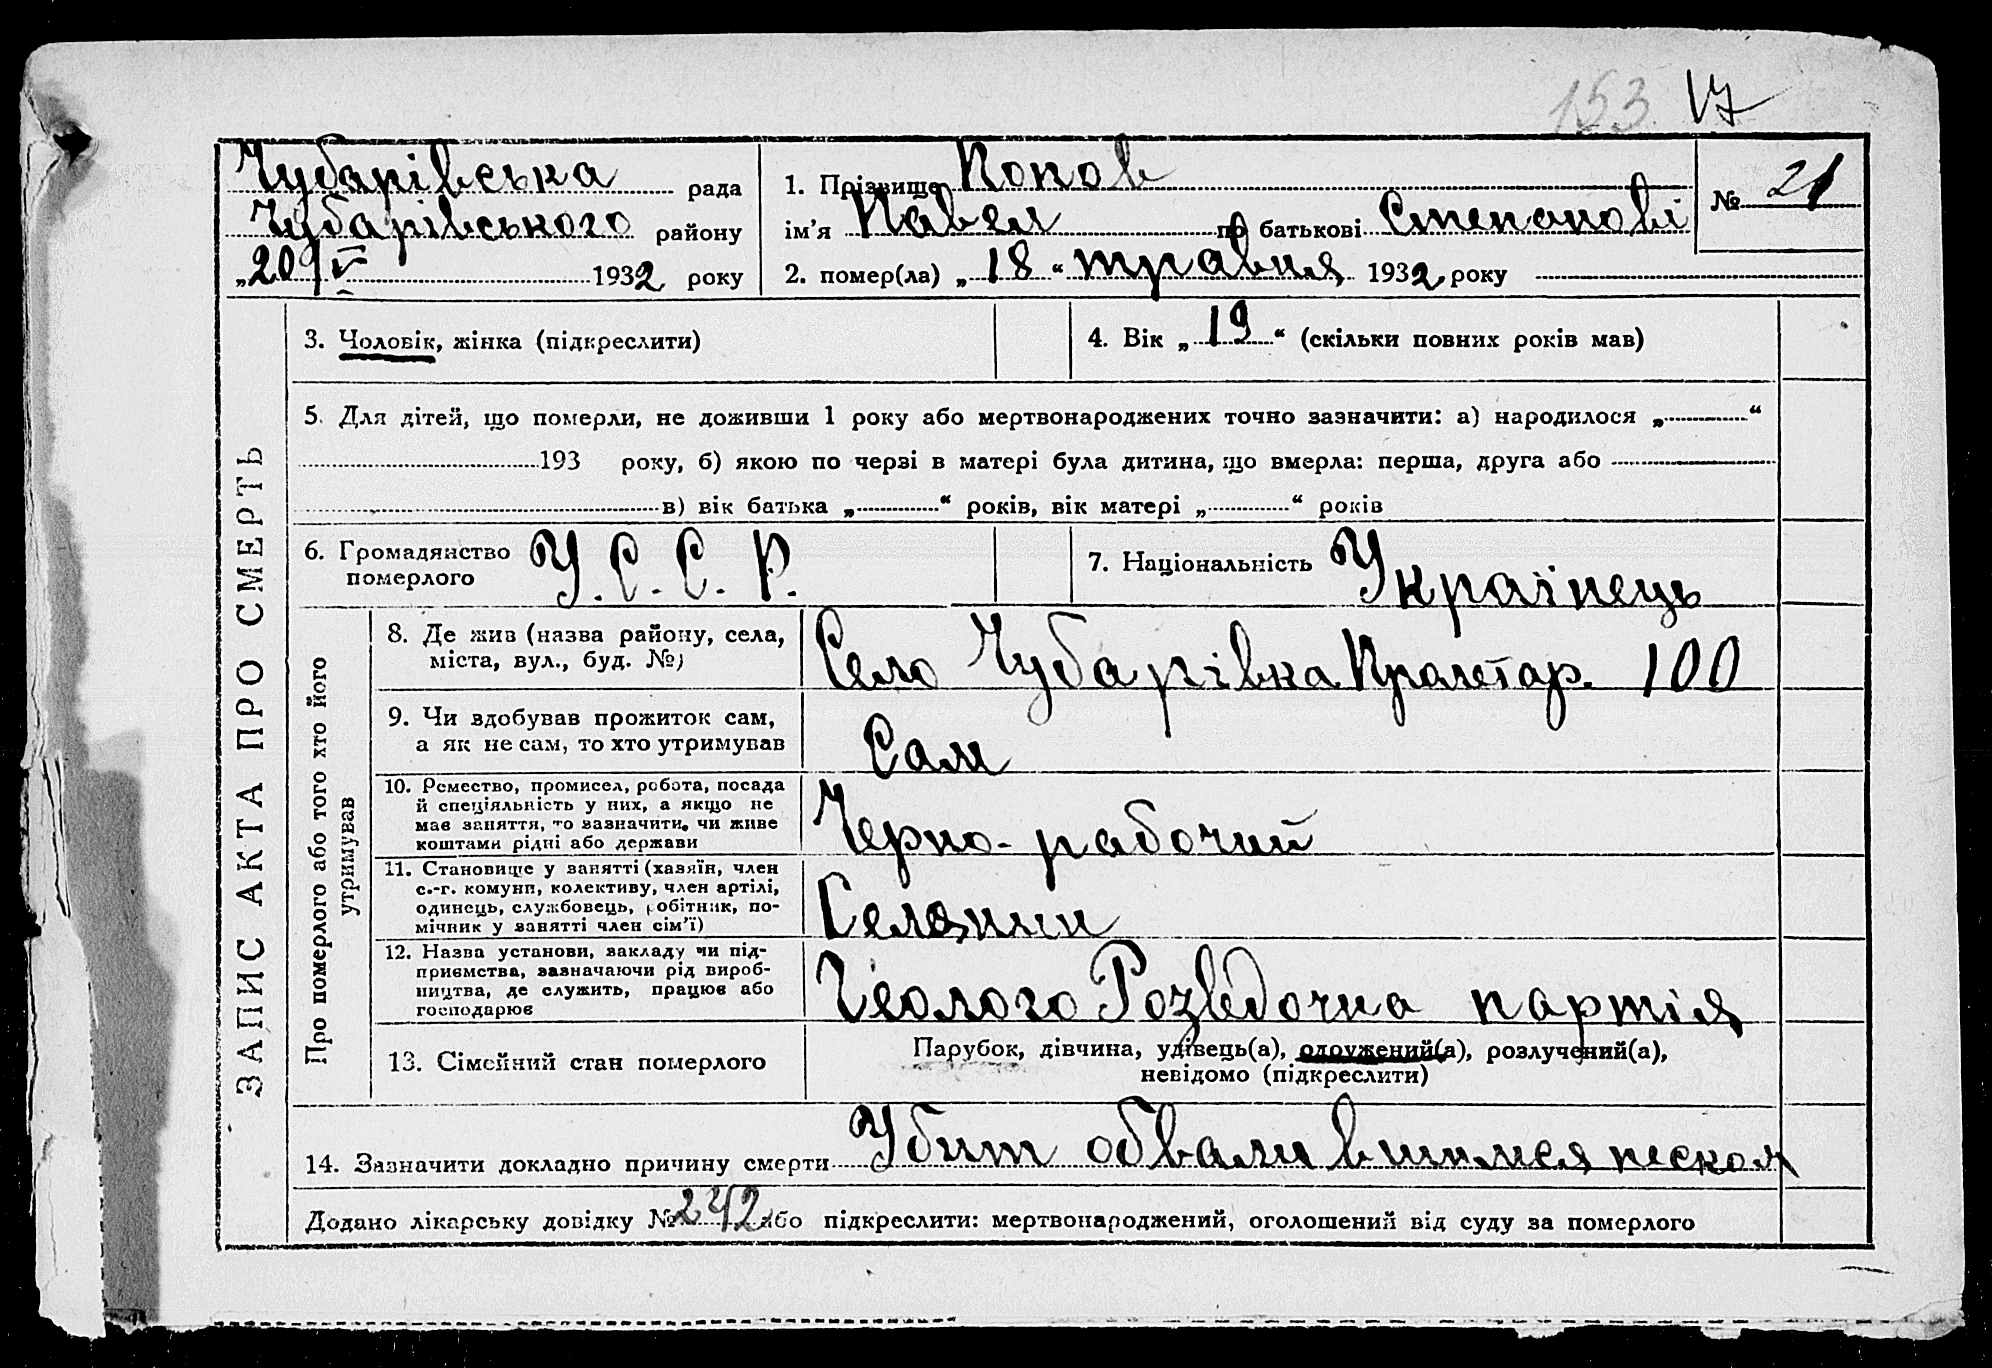 153. 17
Чубарівська рада
Чубарівського району
„20/V 1932 року
1. Прізвище Попов
ім'я Павел по батькові Степанові
2. помер(ла) „18“ травня 1932 року
№ 21
ЗАПИС АКТА ПРО СМЕРТЬ
3. Чоловік, жінка (підкреслити)
4. Вік „19“ (скільки повних років мав)
5. Для дітей, що померли, не доживши 1 року або мертвонароджених точно зазначити: а) народилося „ “
193 року, б) якою по черзі в матері була дитина, що вмерла: перша, друга або
в) вік батька „ “ років, вік матері „ “ років
6. Громадянство
померлого
У.С.С.Р.
7. Національність Українець
Про померлого або того хто його
утримував
8. Де жив (назва району, села,
міста, вул., буд. №)
Село Чубарівка Пролетар. 100
9. Чи здобував прожиток сам,
а як не сам, то хто утримував
Сам
10. Ремество, промисел, робота, посада
й спеціяльність у них, а якщо не
мав заняття, то зазначити, чи живе
коштами рідні або держави
Черно-рабочий
11. Становище у занятті (хазяїн, член
с.-г. комуни, колективу, член артілі,
одинець, службовець, робітник, по-
мічник у занятті член сім'ї)
Селянин
12. Назва установи, закладу чи під-
приємства, зазначаючи рід вироб-
ництва, де служить, працює або
господарює
Геолого Розведочна партія
13. Сімейний стан померлого
Парубок, дівчина, удівець(а), одружений(а), розлучений(а),
невідомо (підкреслити)
14. Зазначити докладно причину смерти Убит обвалившимся песком
Додано лікарську довідку № 242 або підкреслити: мертвонароджений, оголошений від суду за померлого